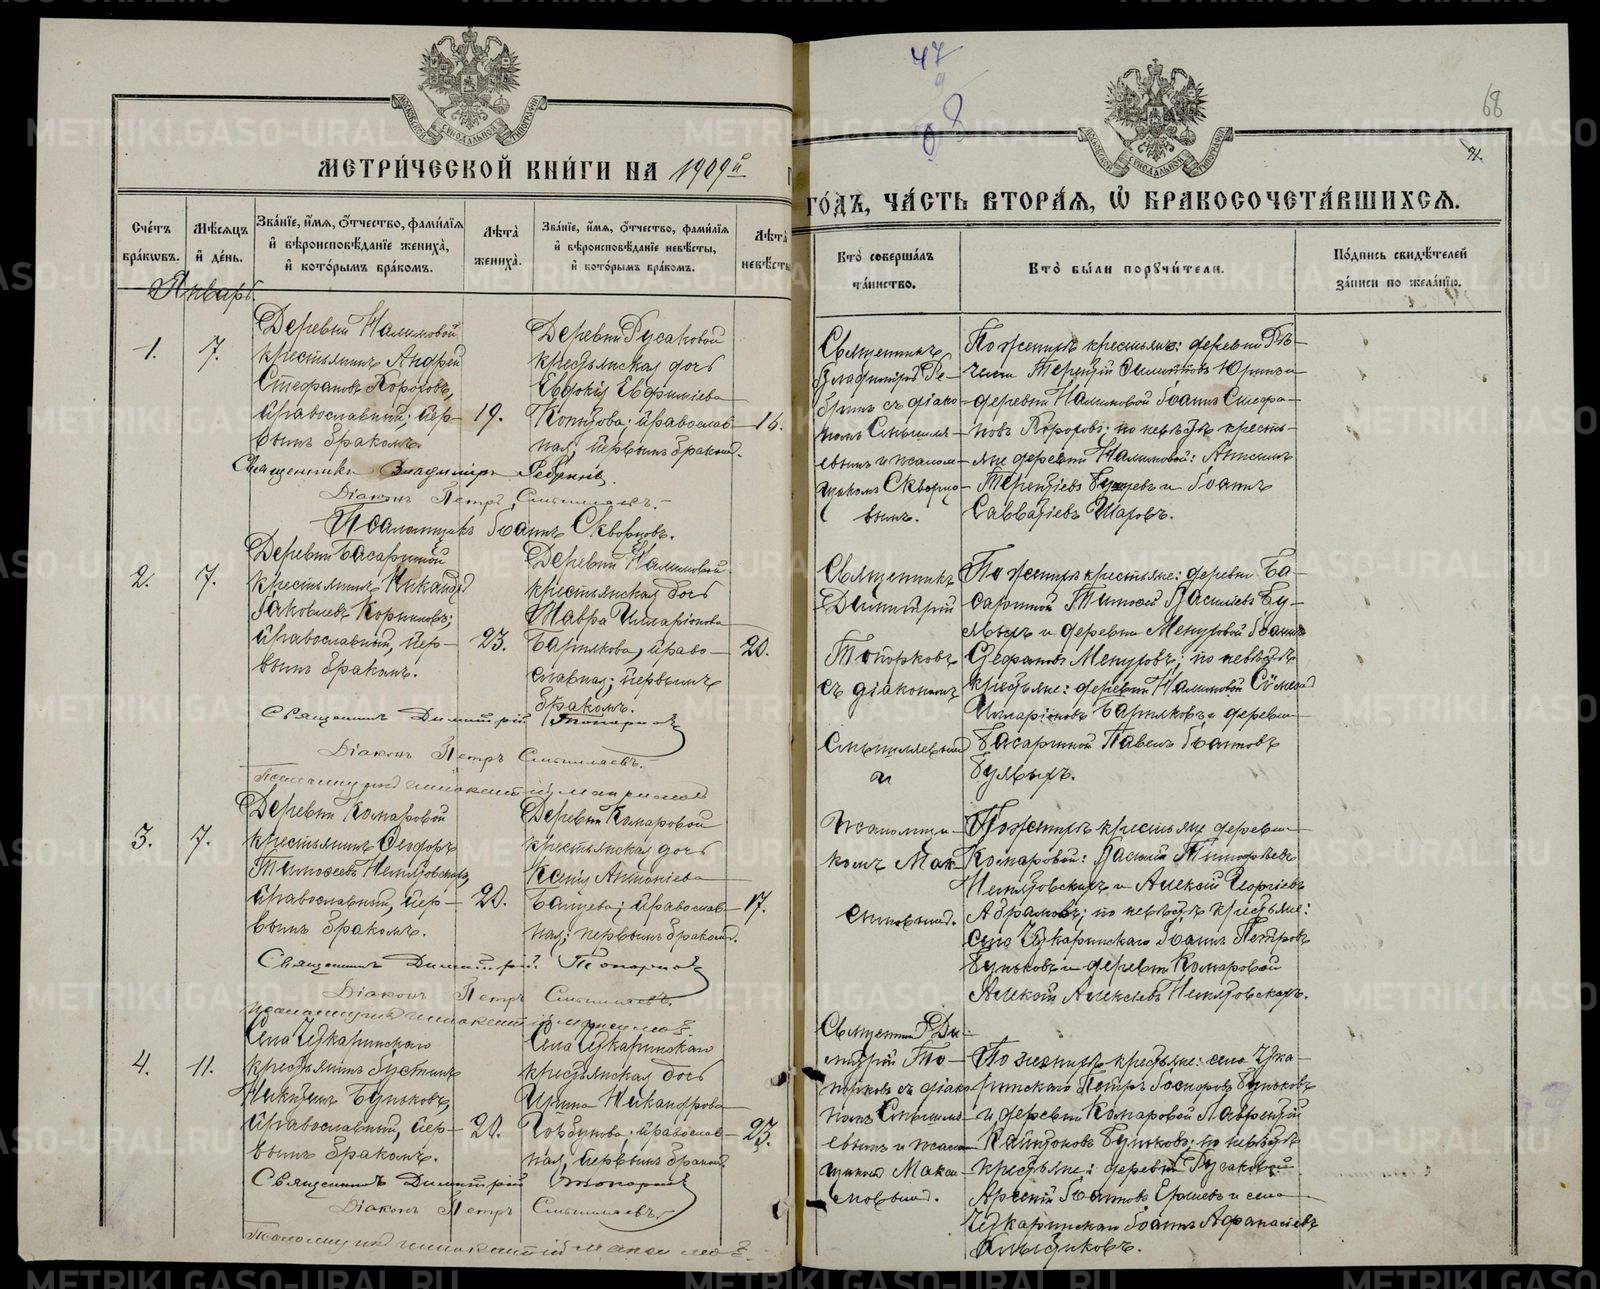 МЕТРИ́ЧЕСКОЙ КНИ́ГИ НА 1909й
ГО́ДЪ, ЧА́СТЬ ВТОРА́Ѧ, Ѡ҆ БРАКОСОЧЕТА́ВШИХСѦ.
68
Сче́тъ бра́кѡвъ.
Мѣ́сѧцъ и҆ де́нь.
Зва́нїе, и҆́мѧ, ѻ҆́тчество, фами́лїѧ и҆ вѣроисповѣ́данїе жениха̀, и҆ кото́рымъ бра́комъ.
Лѣ́та̀ жениха̀.
Зва́нїе, и҆́мѧ, ѻ҆́тчество, фами́лїѧ и҆ вѣроисповѣ́данїе невѣ́сты, и҆ кото́рымъ бра́комъ.
Лѣ́та̀ невѣ́сты
Кто̀ соверша́лъ та́инство.
Кто̀ бы́ли порꙋчи́тели.
По́дпись свидѣ́телей за́писи по жела́нїю.
Январь.
1.
7.
Деревни Налимовой
крестьянинъ Андрей
Стефановъ
православный, пер-
вымъ бракомъ.
19.
Деревни Русаковой
крестьянская дочь
Евдокія Евфиміева
православ-
ная, первымъ бракомъ.
16.
Священникъ
Владиміръ Ре-
бринъ съ діако-
номъ Смышля-
евымъ и псалом-
щикомъ Скворцо-
вымъ.
По женихѣ крестьяне: деревни
деревни Налимовой Іоаннъ Стефа-
новъ по невѣстѣ кресть-
яне деревни Налимовой:
Терентіевъ и Іоаннъ
Савватіевъ Шаровъ.
Священникъ Владиміръ Ребринъ.
Діаконъ Петръ Смышляевъ.
Псаломщикъ Іоаннъ Скворцовъ.
2.
7.
Деревни Басариной
крестьянинъ Никандръ
Іаковлевъ
православный, пер-
вымъ бракомъ.
23.
Деревни Налимовой
крестьянская дочь
Мавра Иларіонова
право-
славная; первымъ
бракомъ.
20.
Священникъ
Димитрій
Топорковъ
съ діакономъ
Смышляевымъ
и
псаломщи-
комъ Мак-
симовымъ.
По женихѣ крестьяне: деревни Ба-
сариной Тимофей Василіевъ
и деревни Іоаннъ
по невѣстѣ
крестьяне: деревни Налимовой
Иларіоновъ и деревни
Басариной Павелъ Іоанновъ
Священникъ Димитрій Топорковъ
Діаконъ Петръ Смышляевъ.
Псаломщикъ Иннокентій Максимовъ
3.
7.
Деревни Комаровой
крестьянинъ Ѳеодоръ
Тимофеевъ
православный, пер-
вымъ бракомъ.
20.
Деревни Комаровой
крестьянская дочь
Ксенія Антоніева
православ-
ная; первымъ бракомъ.
17.
По женихѣ крестьяне деревни
Комаровой: Василій Тимофѣевъ
и Алексій Георгіевъ
Абрамовъ; по невѣстѣ крестьяне:
села Чукаринскаго Іоаннъ Петровъ
Буньковъ и деревни Комаровой
Алексій Алексіевъ
Священникъ Димитрій Топорковъ
Діаконъ Петръ Смышляевъ.
Псаломщикъ Иннокентій Максимовъ
4.
11.
Села Чукаринскаго
крестьянинъ Іустинъ
Никитинъ Буньковъ,
православный, пер-
вымъ бракомъ.
20.
Села Чукаринскаго
крестьянская дочь
Ирина Никандрова
Горбунова, православ-
ная, первымъ бракомъ.
23.
Священникъ Ди-
митрій То-
порковъ съ діако-
номъ Смышля-
евымъ и псалом-
щикомъ Макси-
мовымъ.
По женихѣ крестьяне: села Чука-
ринскаго Петръ Іосифовъ Буньковъ
и деревни Комаровой Лаврентій
Буньковъ; по невѣстѣ
крестьяне: деревни Русаковой
Арсеній Іоанновъ Ершевъ и села
Чукаринскаго Іоаннъ Аѳанасіевъ
Священникъ Димитрій Топорковъ
Діаконъ Петръ Смышляевъ.
Псаломщикъ Иннокентій Максимовъ
METRIKI.GASO-URAL.RU